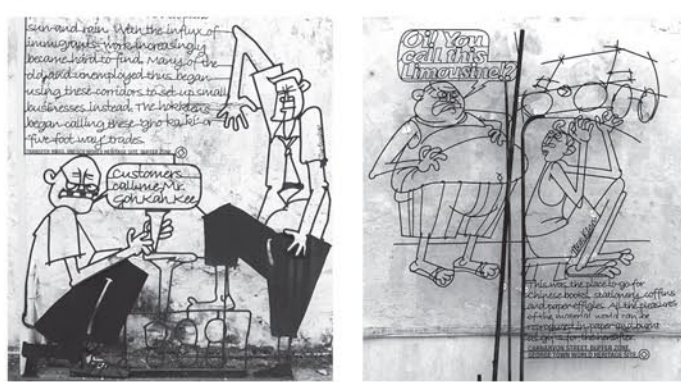 sun and rain. With the influx of
immigrants, work increasingly
became hard to find. Many of the
old and unemployed thus began
using these corridors to set up small
businesses instead. The hokkiens
began calling these 'gho kaki' or
'five foot way' trades.
Customers
call me Mr.
Goh Kah Kee
Oi! You
call this
Limousine!?
This was the place to go for
Chinese books, stationery, coffins
and paper effigies. All the pleasures
of the material world can be
reproduced in paper and burnt
as gifts for the hereafter.
CARNARVON STREET, BUFFER ZONE,
GEORGE TOWN WORLD HERITAGE SITE